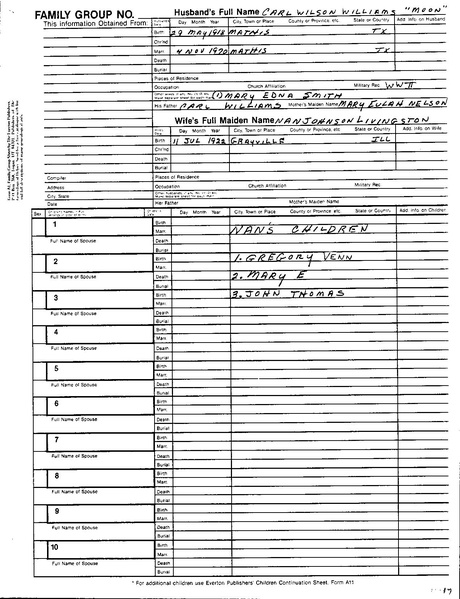 FAMILY GROUP NO.
Husband's Full Name CARL WILSON WILLIAMS "MOON"
This Information Obtained From:
Day Month Year City, Town or Place County or Province, etc. State or Country Add. Info. on Husband
Birth 29 MAY 1918 MATHIS TX
Chr'nd
Marr. 4 NOV 1970 MATHIS TX
Death
Burial
Places of Residence
Occupation Church Affiliation Military Rec. WW II
(1) MARY EDNA SMITH
His Father CARL WILLIAMS Mother's Maiden Name MARY EULAH NELSON
Wife's Full Maiden Name NAN JOHNSON LIVINGSTON
Day Month Year City, Town or Place County or Province, etc. State or Country Add. Info. on Wife
Birth 11 JUL 1922 GRAYVILLE ILL
Chr'nd
Death
Burial
Compiler Places of Residence
Address Occupation Church Affiliation Military Rec.
City, State
Date Her Father Mother's Maiden Name
Sex Day Month Year City, Town or Place County or Province, etc. State or Country Add. Info. on Children
1 Birth
Marr. NAN'S CHILDREN
Full Name of Spouse Death
Burial
2 Birth 1. GREGORY VENN
Marr.
Full Name of Spouse Death 2. MARY E
Burial
3 Birth 3. JOHN THOMAS
Marr.
Full Name of Spouse Death
Burial
4 Birth
Marr.
Full Name of Spouse Death
Burial
5 Birth
Marr.
Full Name of Spouse Death
Burial
6 Birth
Marr.
Full Name of Spouse Death
Burial
7 Birth
Marr.
Full Name of Spouse Death
Burial
8 Birth
Marr.
Full Name of Spouse Death
Burial
9 Birth
Marr.
Full Name of Spouse Death
Burial
10 Birth
Marr.
Full Name of Spouse Death
Burial
* For additional children use Everton Publishers' Children Continuation Sheet, Form A11
17